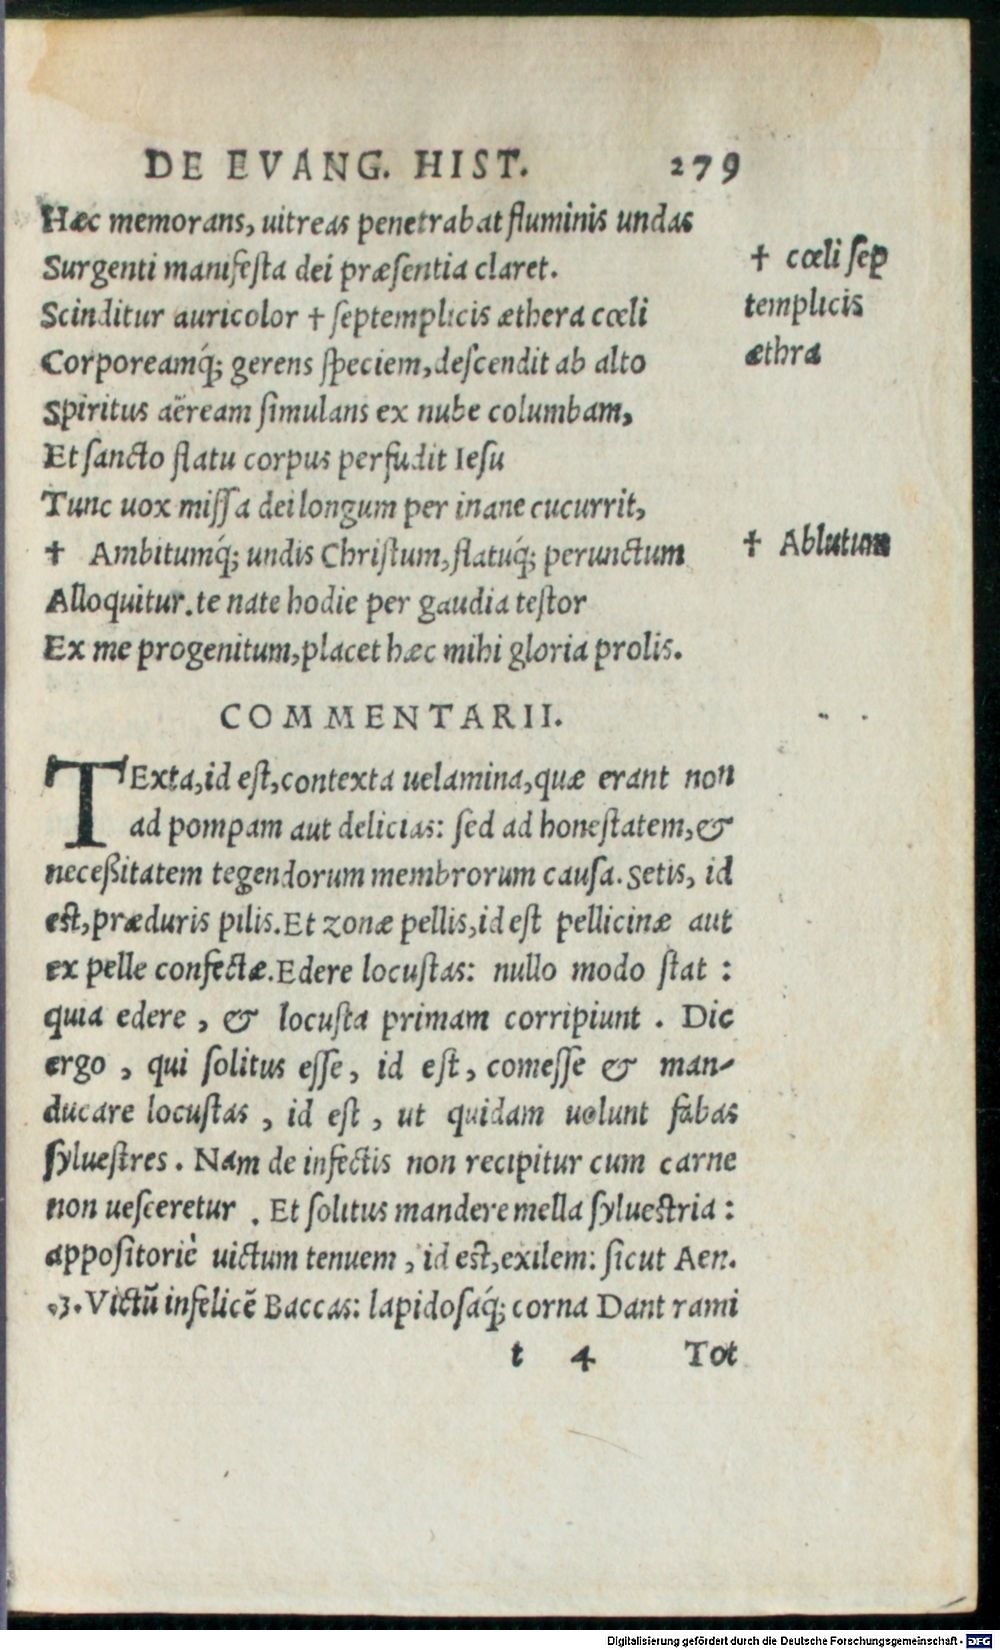 DE EVANG. HIST. 279
Hæc memorans, uitreas penetrabat fluminis undas
Surgenti manifesta dei præsentia claret.
Scinditur auricolor † septemplicis æthera cœli
Corporeamq́; gerens speciem, descendit ab alto
Spiritus aëream simulans ex nube columbam,
Et sancto flatu corpus perfudit Iesu
Tunc uox missa dei longum per inane cucurrit,
† Ambitumq́; undis Christum, flatuq́; perunctum
Alloquitur. te nate hodie per gaudia testor
Ex me progenitum, placet hæc mihi gloria prolis.
† cœli sep
templicis
æthra
† Ablutum
COMMENTARII.
TExta, id est, contexta uelamina, quæ erant non
ad pompam aut delicias: sed ad honestatem, &
necessitatem tegendorum membrorum causa. Setis, id
est, præduris pilis. Et zonæ pellis, id est pellicinæ aut
ex pelle confectæ. Edere locustas: nullo modo stat:
quia edere, & locusta primam corripiunt. Dic
ergo, qui solitus esse, id est, comesse & man-
ducare locustas, id est, ut quidam uolunt fabas
syluestres. Nam de infectis non recipitur cum carne
non uesceretur. Et solitus mandere mella syluestria:
appositoriè uictum tenuem, id est, exilem: sicut Aen.
.3. Victũ infelicẽ Baccas: lapidosaq́; corna Dant rami
t 4 Tot
Digitalisierung gefördert durch die Deutsche Forschungsgemeinschaft - DFG